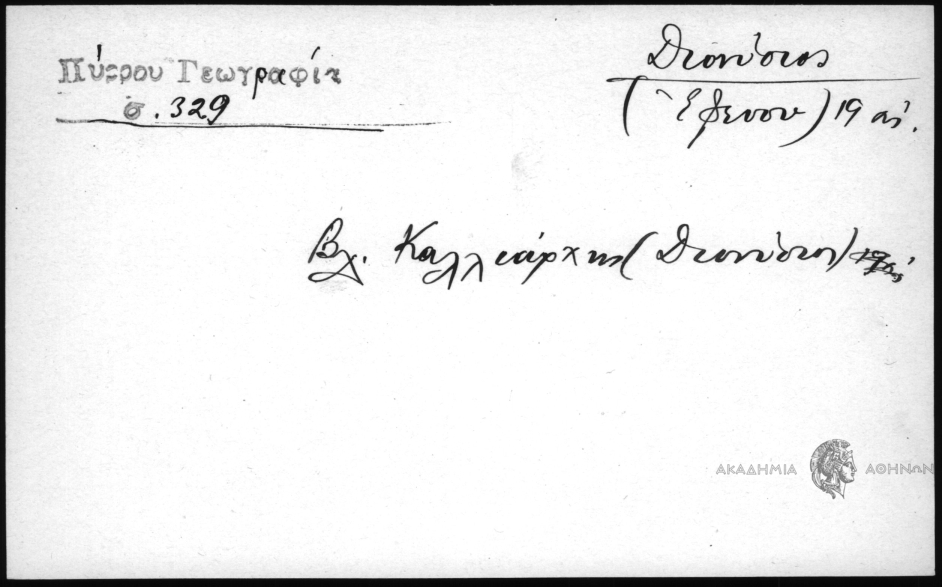 Πύρρου Γεωγραφία
σ. 329
Διονύσιος
(Ἐφέσου) 19 αἰ.
Βλ. Καλλιάρχης (Διονύσιος)
ΑΚΑΔΗΜΙΑ ΑΘΗΝΩΝ